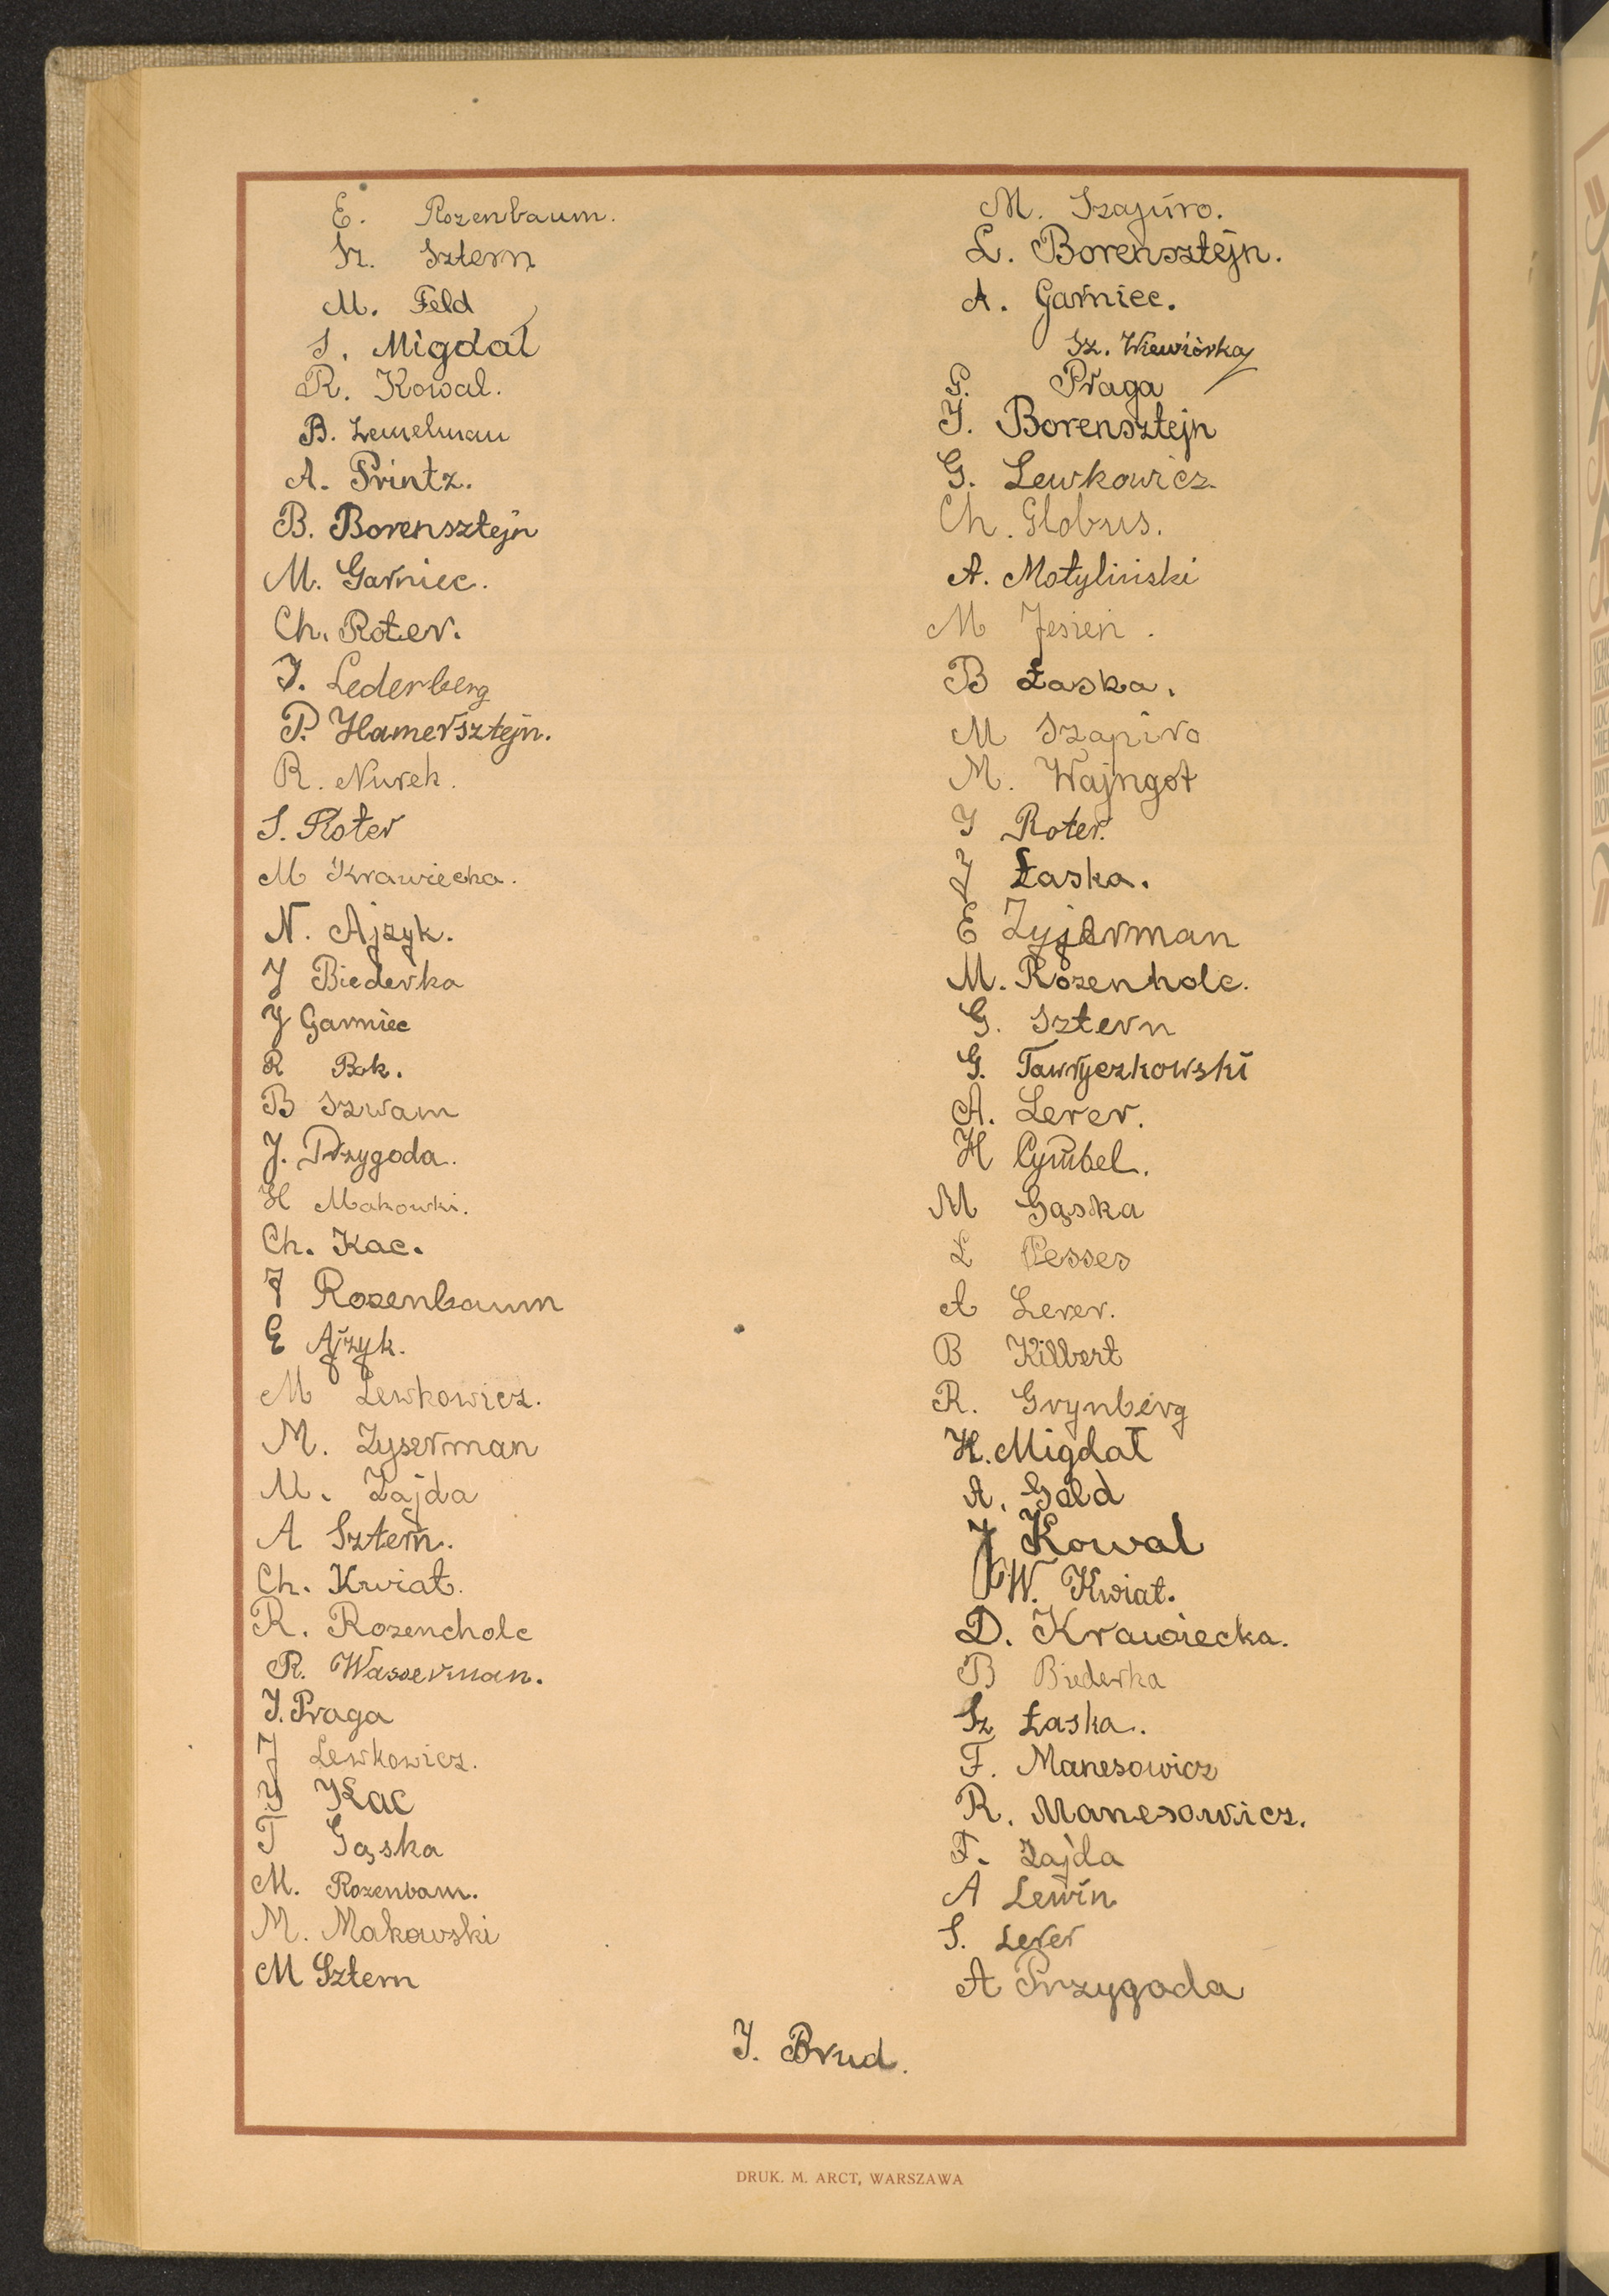 E. Rozenbaum.
Sz. Sztern
M. Feld
S. Migdał
R. Kowal.
B. Zemelman
A. Printz.
B. Borensztejn
M. Garniec.
Ch. Roter.
J. Lederberg
P. Hamersztejn.
R. Nurek.
S. Roter
M Krawiecka.
N. Ajzyk.
J Biederka
J Garniec
R Bok.
B Szwam
J. Przygoda.
H Makowski.
Ch. Kac.
J Rozenbaum
E Ajzyk.
M Lewkowicz.
M. Zyserman
M. Zajda
A Sztern.
Ch. Kwiat.
R. Rozencholc
R. Wasserman.
J. Praga
J Lewkowicz.
J Kac
T Gąska
M. Rozenbam.
M. Makowski
M Sztern
M. Szapiro.
L. Borensztejn.
A. Garniec.
Sz. Wiewiórka
G. Praga
J. Borensztejn
G. Lewkowicz.
Ch. Globus.
A. Motyliński
M Jesień.
B Łaska.
M Szapiro
M. Wajngot
J Roter.
J Łaska.
E Zyjerman
M. Rozenholc.
G. Sztern
G. Tawryczkowski
A. Lerer.
H Cymbel.
M Gąska
L Pesses
A Lerer.
B Kilbert
R. Grynberg
H. Migdał
A. Gold
J Kowal
W. Kwiat.
D. Krawiecka.
B Biederka
Sz Łaska.
F. Manesowicz
R. Manesowicz.
F. Zajda
A Lewin
S. Lerer
A Przygoda
J. Brud.
DRUK. M. ARCT, WARSZAWA